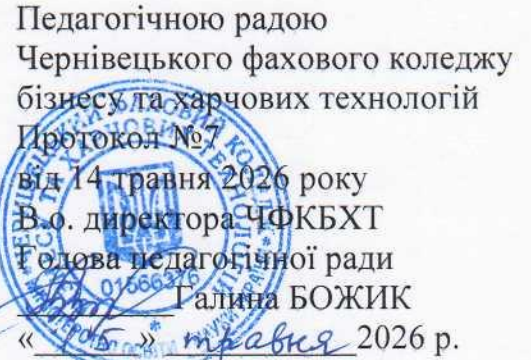 Педагогічною радою
Чернівецького фахового коледжу
бізнесу та харчових технологій
Протокол №7
від 14 травня 2026 року
В.о. директора ЧФКБХТ
Голова педагогічної ради
Галина БОЖИК
«15» травня 2026 р.
01566376